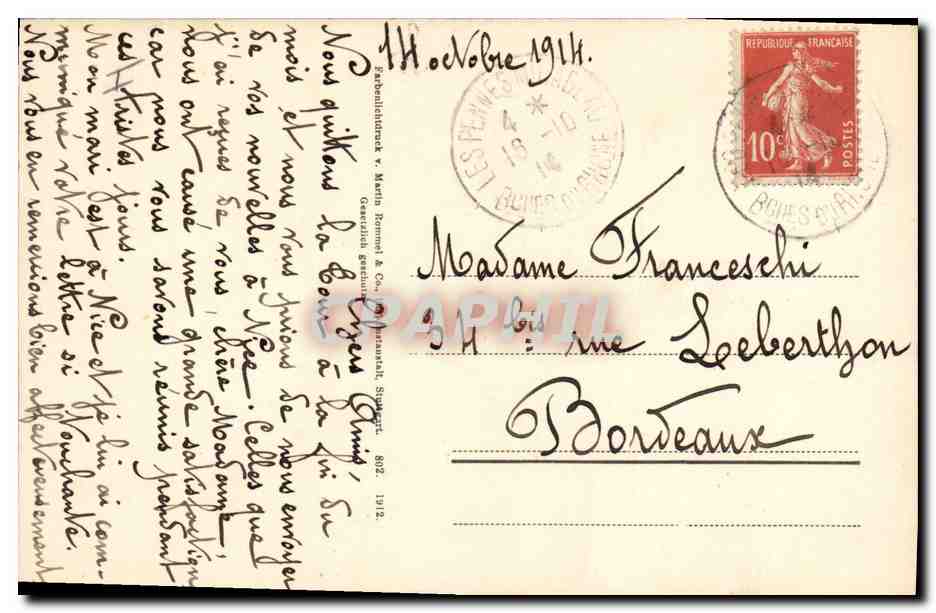 14 octobre 1914.
Chers Amis,
Nous quittons la Cour à la fin du
mois et nous vous prions de nous envoyer
de vos nouvelles à Nice. Celles que
j'ai reçues de vous, chère Madame,
nous ont causé une grande satisfaction
car nous vous savons réunis pendant
ces tristes jours.
Mon mari est à Nice et je lui ai com-
muniqué votre lettre si touchante.
Nous vous en remercions bien affectueusement
Farbenlichtdruck v. Martin Rommel & Co., Stuttgart. 802. 1912.
Gesetzlich geschützt
LES PENNES
4 * -10
18 14
BCHES DU RHONE
REPUBLIQUE FRANÇAISE
10c
POSTES
BCHES DU RHONE
CPAPHIL
Madame Franceschi
34 bis rue Leberthon
Bordeaux